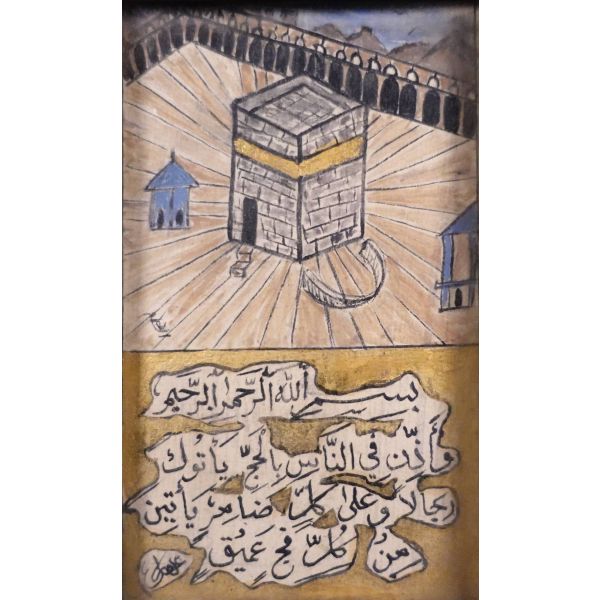 بسم الله الرحمن الرحيم
وَأَذِّن فِي النَّاسِ بِالْحَجِّ يَأْتُوكَ
رِجَالًا وَعَلَى كُلِّ ضَامِرٍ يَأْتِينَ
مِنْ كُلِّ فَجٍّ عَمِيقٍ